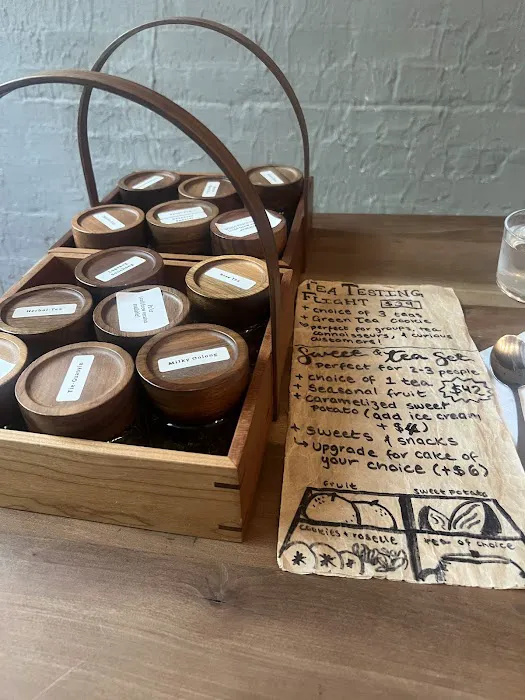 Herbal Tea
Tie Guanyin
Milky Oolong
TEA TESTING
FLIGHT $39
+ choice of 3 teas
+ Green Tea Cookie
perfect for groups, tea
connoisseurs, & curious
customers!
Sweet & tea Set
perfect for 2-3 people
+ choice of 1 tea
+ seasonal fruit $42
+ caramelized sweet
potato (add ice cream
+ $4)
+ sweets & snacks
↳ Upgrade for cake of
your choice (+$6)
fruit
sweet potato
cookies + roselle
tea of choice